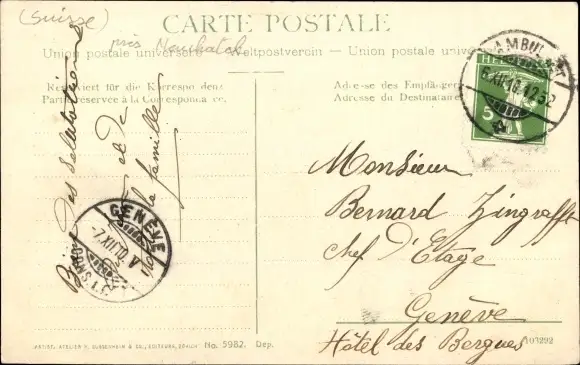 (Suisse)
près Neuchatel
CARTE POSTALE
Union postale universelle - Weltpostverein - Union postale univ
Reserviert für die Korrespondenz
Partie réservée à la Correspondance.
Adresse des Empfängers
Adresse du Destinataire
AMBUL
6.XII.10.12
HELV
5
Bien des Salutations
et de
la famille
GENÈVE
-7.XII.10. V
Monsieur
Bernard Zingrafft
chef d'Etage
Genève
Hôtel des Bergues
ARTIST. ATELIER H. GUGGENHEIM & CO., EDITEURS, ZÜRICH No. 5982. Dep.
103292